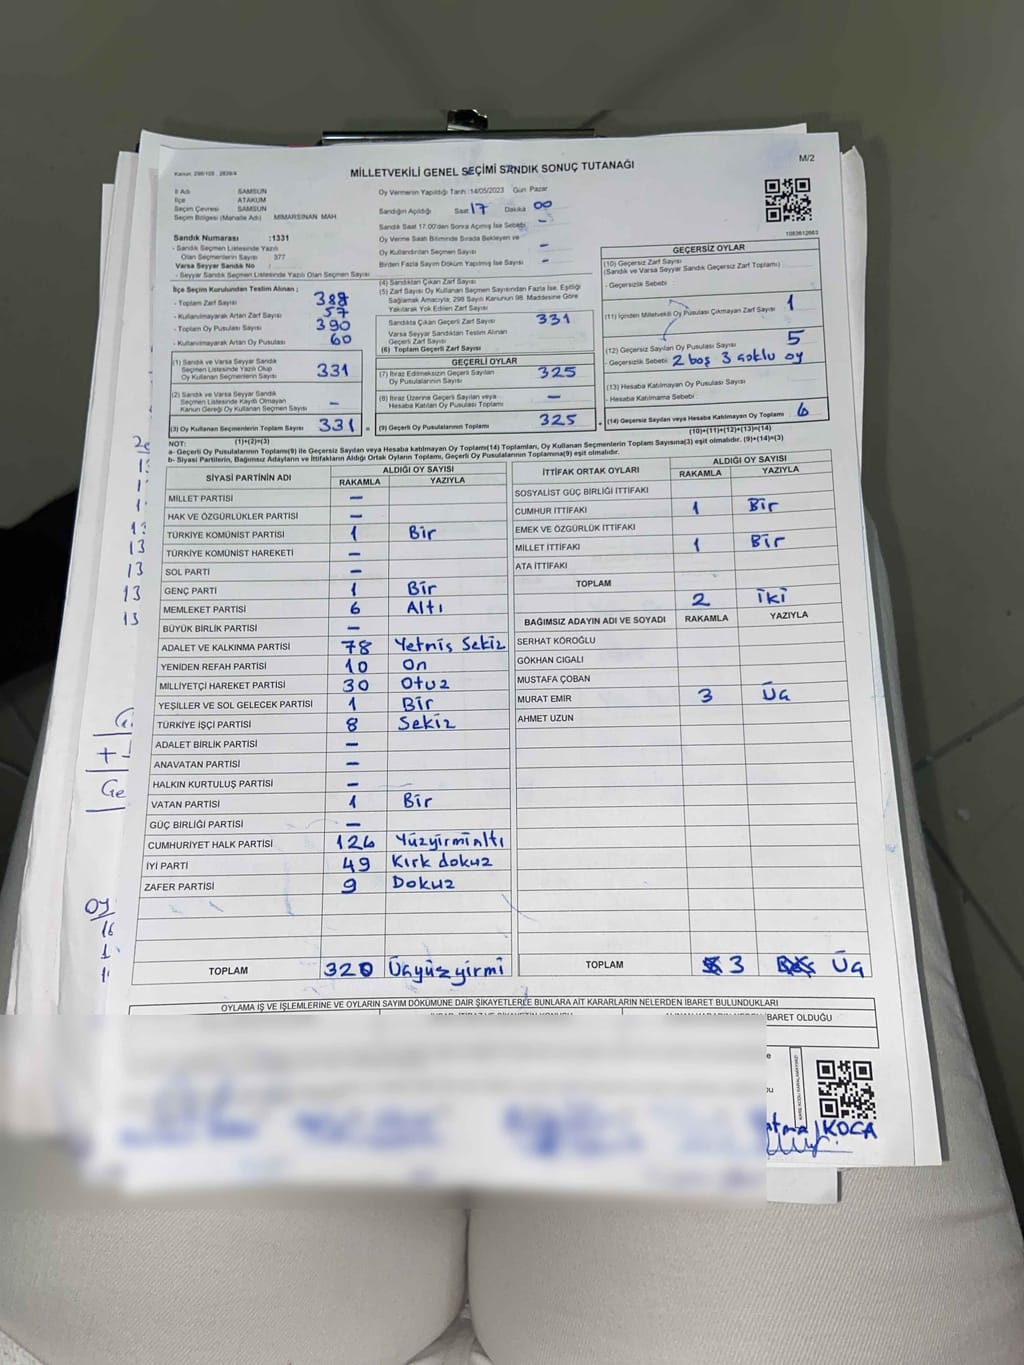 Kanun: 298/105 , 2839/4
MİLLETVEKİLİ GENEL SEÇİMİ SANDIK SONUÇ TUTANAĞI
M/2
İl Adı SAMSUN
İlçe ATAKUM
Seçim Çevresi SAMSUN
Seçim Bölgesi (Mahalle Adı) MİMARSİNAN MAH
Sandık Numarası :1331
- Sandık Seçmen Listesinde Yazılı
Olan Seçmenlerin Sayısı 377
Varsa Seyyar Sandık No :
- Seyyar Sandık Seçmen Listesinde Yazılı Olan Seçmen Sayısı
Oy Vermenin Yapıldığı Tarih :14/05/2023 Gün Pazar
Sandığın Açıldığı Saat 17 Dakika 00
Sandık Saat 17.00'den Sonra Açılmış İse Sebebi –
Oy Verme Saati Bitiminde Sırada Bekleyen ve
Oy Kullandırılan Seçmen Sayısı –
Birden Fazla Sayım Döküm Yapılmış İse Sayısı –
1083612663
İlçe Seçim Kurulundan Teslim Alınan ;
- Toplam Zarf Sayısı 388
- Kullanılmayarak Artan Zarf Sayısı 57
- Toplam Oy Pusulası Sayısı 390
- Kullanılmayarak Artan Oy Pusulası 60
(1) Sandık ve Varsa Seyyar Sandık
Seçmen Listesinde Yazılı Olup
Oy Kullanan Seçmenlerin Sayısı 331
(2) Sandık ve Varsa Seyyar Sandık
Seçmen Listesinde Kayıtlı Olmayan
Kanun Gereği Oy Kullanan Seçmen Sayısı –
(3) Oy Kullanan Seçmenlerin Toplam Sayısı 331 =
(1)+(2)=(3)
(4) Sandıktan Çıkan Zarf Sayısı
(5) Zarf Sayısı Oy Kullanan Seçmen Sayısından Fazla İse, Eşitliği
Sağlamak Amacıyla, 298 Sayılı Kanunun 98. Maddesine Göre
Yakılarak Yok Edilen Zarf Sayısı
Sandıkta Çıkan Geçerli Zarf Sayısı 331
Varsa Seyyar Sandıktan Teslim Alınan
Geçerli Zarf Sayısı
(6) Toplam Geçerli Zarf Sayısı
GEÇERLİ OYLAR
(7) İtiraz Edilmeksizin Geçerli Sayılan
Oy Pusulalarının Sayısı 325
(8) İtiraz Üzerine Geçerli Sayılan veya
Hesaba Katılan Oy Pusulası Toplamı –
(9) Geçerli Oy Pusulalarının Toplamı 325 +
GEÇERSİZ OYLAR
(10) Geçersiz Zarf Sayısı
(Sandık ve Varsa Seyyar Sandık Geçersiz Zarf Toplamı)
- Geçersizlik Sebebi
(11) İçinden Milletvekili Oy Pusulası Çıkmayan Zarf Sayısı 1
(12) Geçersiz Sayılan Oy Pusulası Sayısı 5
- Geçersizlik Sebebi 2 boş 3 çoklu oy
(13) Hesaba Katılmayan Oy Pusulası Sayısı
- Hesaba Katılmama Sebebi
(14) Geçersiz Sayılan veya Hesaba Katılmayan Oy Toplamı 6
(10)+(11)+(12)+(13)=(14)
NOT:
a- Geçerli Oy Pusulalarının Toplamı(9) ile Geçersiz Sayılan veya Hesaba katılmayan Oy Toplamı(14) Toplamları, Oy Kullanan Seçmenlerin Toplam Sayısına(3) eşit olmalıdır. (9)+(14)=(3)
b- Siyasi Partilerin, Bağımsız Adayların ve İttifakların Aldığı Ortak Oyların Toplamı, Geçerli Oy Pusulalarının Toplamına(9) eşit olmalıdır.
SİYASİ PARTİNİN ADI ALDIĞI OY SAYISI
RAKAMLA YAZIYLA
MİLLET PARTİSİ –
HAK VE ÖZGÜRLÜKLER PARTİSİ –
TÜRKİYE KOMÜNİST PARTİSİ 1 Bir
TÜRKİYE KOMÜNİST HAREKETİ –
SOL PARTİ –
GENÇ PARTİ 1 Bir
MEMLEKET PARTİSİ 6 Altı
BÜYÜK BİRLİK PARTİSİ –
ADALET VE KALKINMA PARTİSİ 78 Yetmiş Sekiz
YENİDEN REFAH PARTİSİ 10 On
MİLLİYETÇİ HAREKET PARTİSİ 30 Otuz
YEŞİLLER VE SOL GELECEK PARTİSİ 1 Bir
TÜRKİYE İŞÇİ PARTİSİ 8 Sekiz
ADALET BİRLİK PARTİSİ –
ANAVATAN PARTİSİ –
HALKIN KURTULUŞ PARTİSİ –
VATAN PARTİSİ 1 Bir
GÜÇ BİRLİĞİ PARTİSİ –
CUMHURİYET HALK PARTİSİ 126 Yüzyirmialtı
İYİ PARTİ 49 Kırk dokuz
ZAFER PARTİSİ 9 Dokuz
TOPLAM 320 Üçyüzyirmi
İTTİFAK ORTAK OYLARI ALDIĞI OY SAYISI
RAKAMLA YAZIYLA
SOSYALİST GÜÇ BİRLİĞİ İTTİFAKI
CUMHUR İTTİFAKI 1 Bir
EMEK VE ÖZGÜRLÜK İTTİFAKI
MİLLET İTTİFAKI 1 Bir
ATA İTTİFAKI
TOPLAM 2 İki
BAĞIMSIZ ADAYIN ADI VE SOYADI RAKAMLA YAZIYLA
SERHAT KÖROĞLU
GÖKHAN CIGALI
MUSTAFA ÇOBAN
MURAT EMİR 3 Üç
AHMET UZUN
TOPLAM 3 Üç
OYLAMA İŞ VE İŞLEMLERİNE VE OYLARIN SAYIM DÖKÜMÜNE DAİR ŞİKAYETLERLE BUNLARA AİT KARARLARIN NELERDEN İBARET BULUNDUKLARI
İBARET OLDUĞU
KOCA